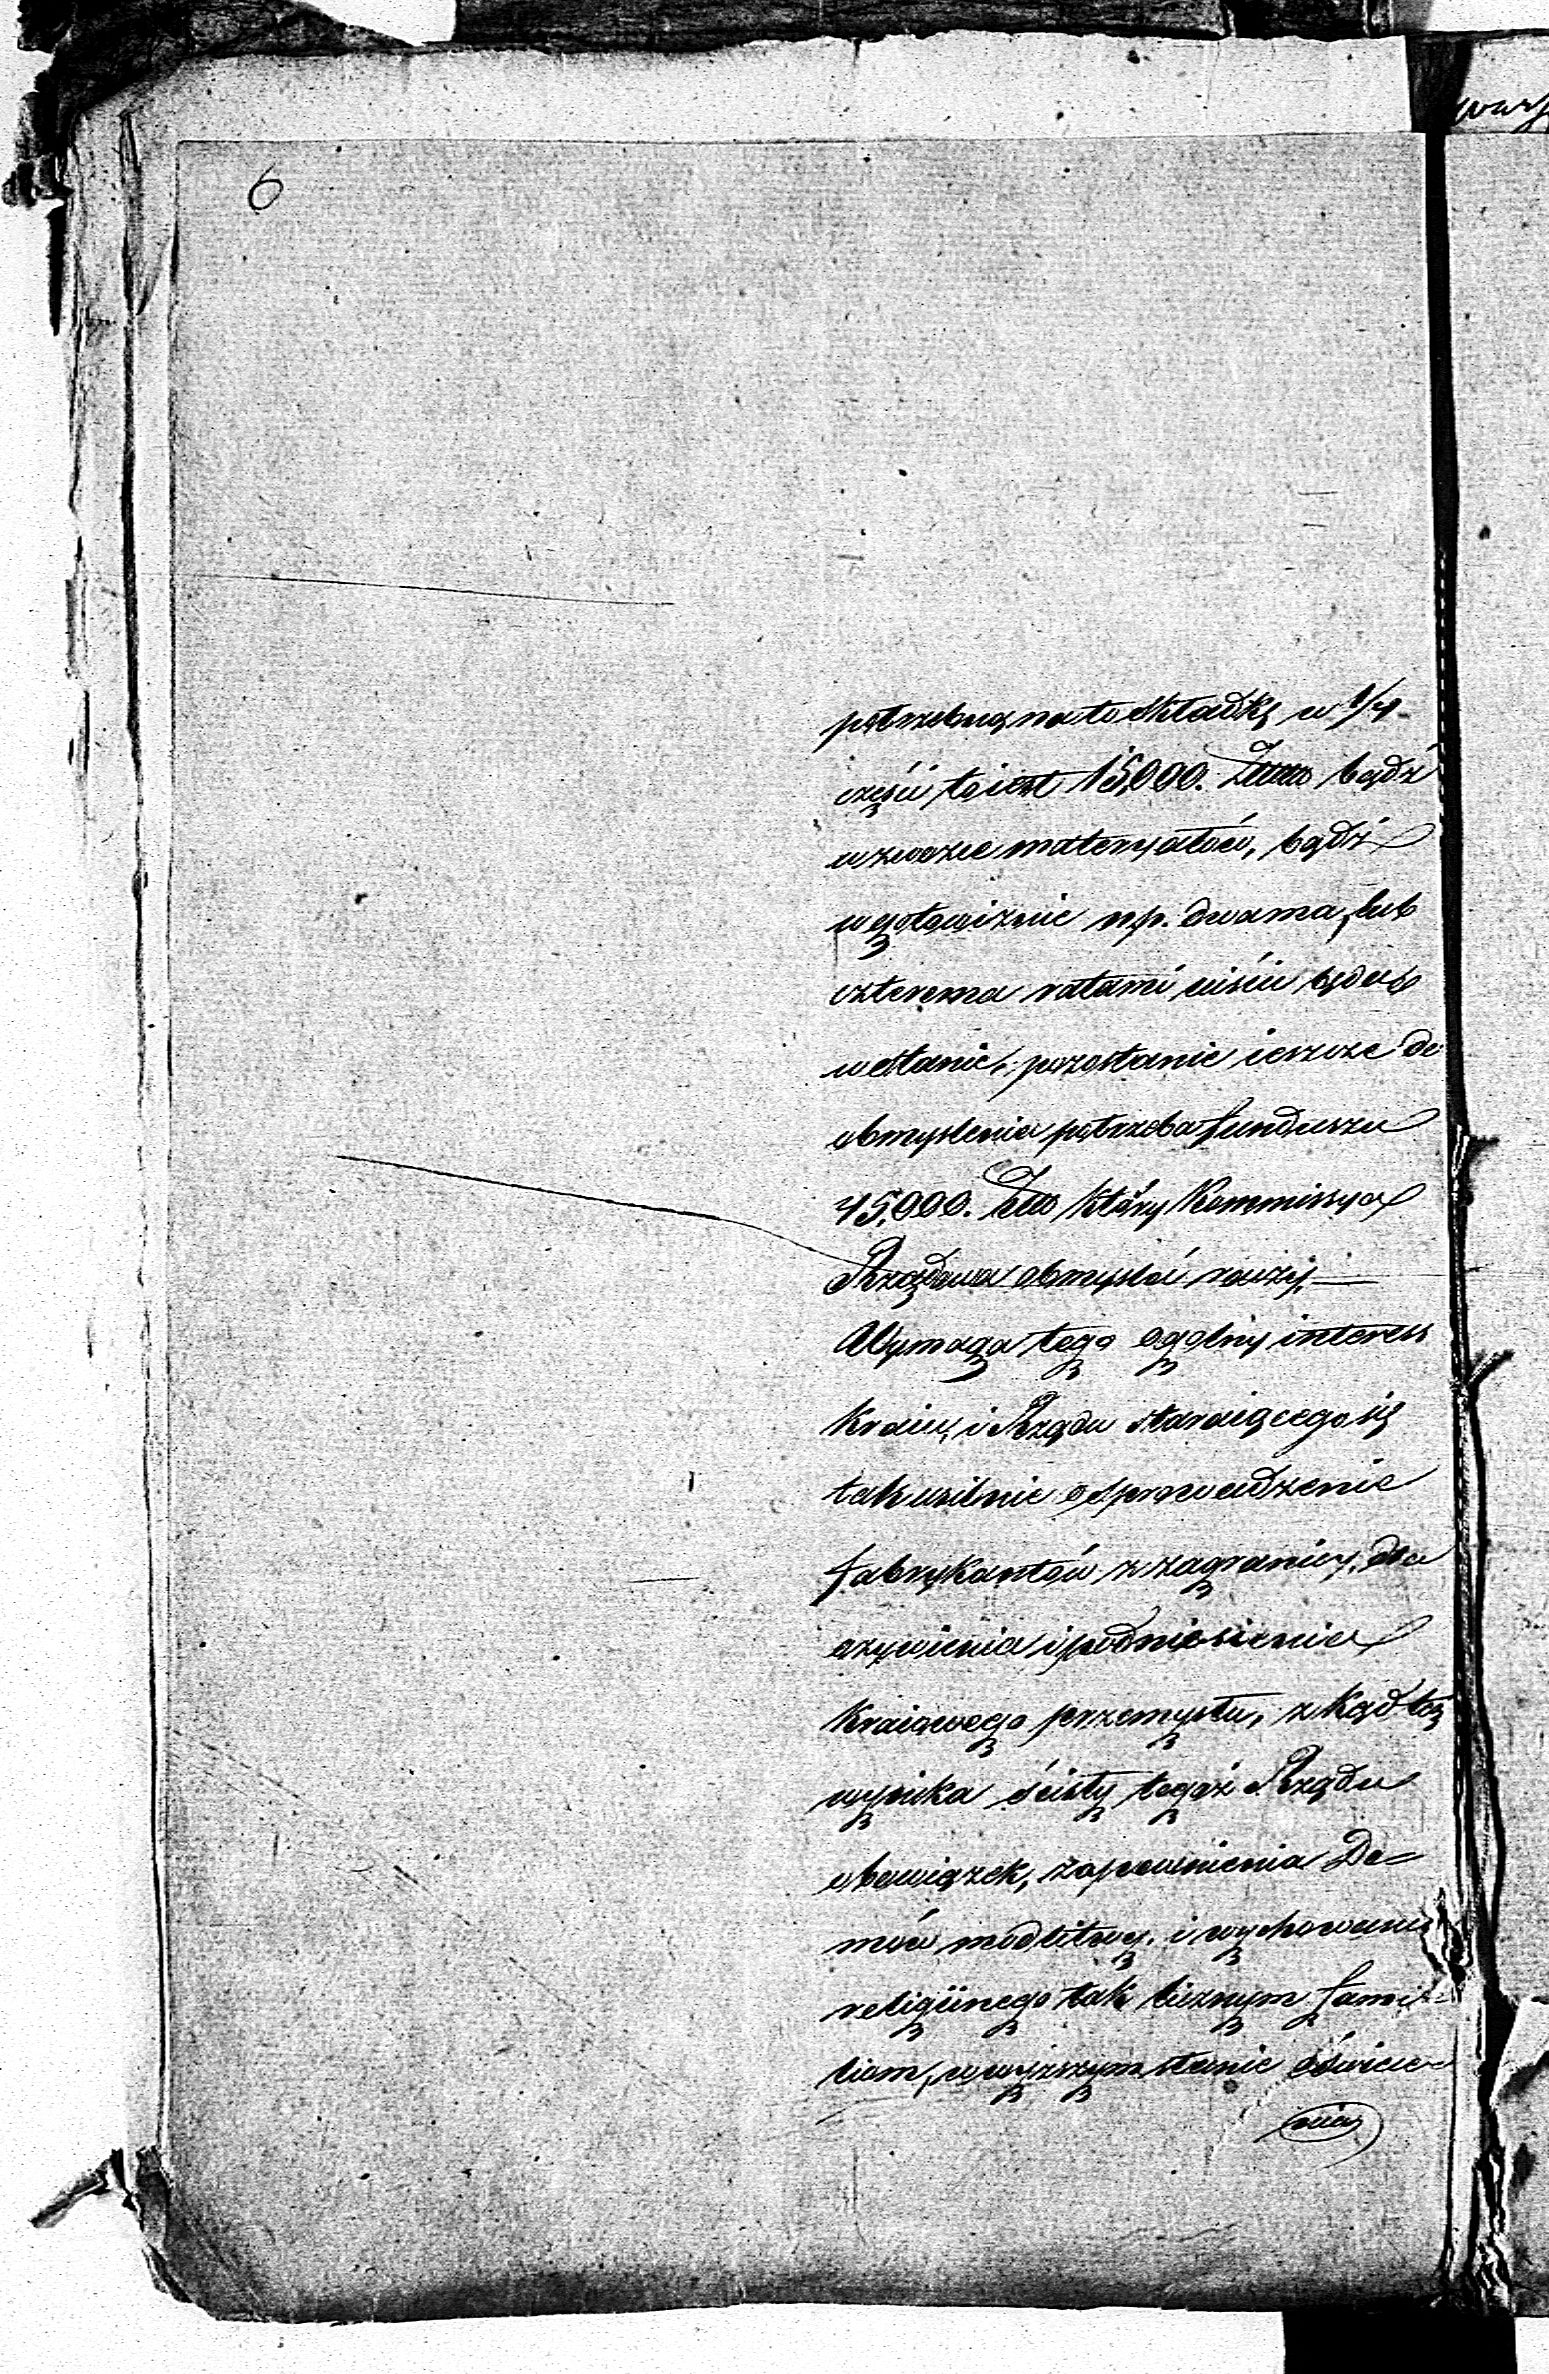 6
potrzebną na to składkę w 1/4
częsci to iest 15,000. Złł bądź
w zwozce materyałów, bądź
w gotowiznie np. dwama, lub
czterema ratami uiścić będą
w stanie, pozostanie ieszcze do
obmyslenia potrzeba funduszu
45,000. Złł który Kommissya
Rządowa obmyslić raczy. —
Wymaga tego ogolny interess
Kraiu, i Rządu staraiącego się
tak usilnie o sprowadzenie
fabrykantów z zagranicy, dla
ozywienia i podniesienia
Kraiowego przemysłu, z kąd też
wynika ścisły tegoż Rządu
obowiązek, zapewnienia Do=
mów modlitwy, i wychowania
religiinego tak licznym fami=
liom, w wyższym stanie oświece=
nia